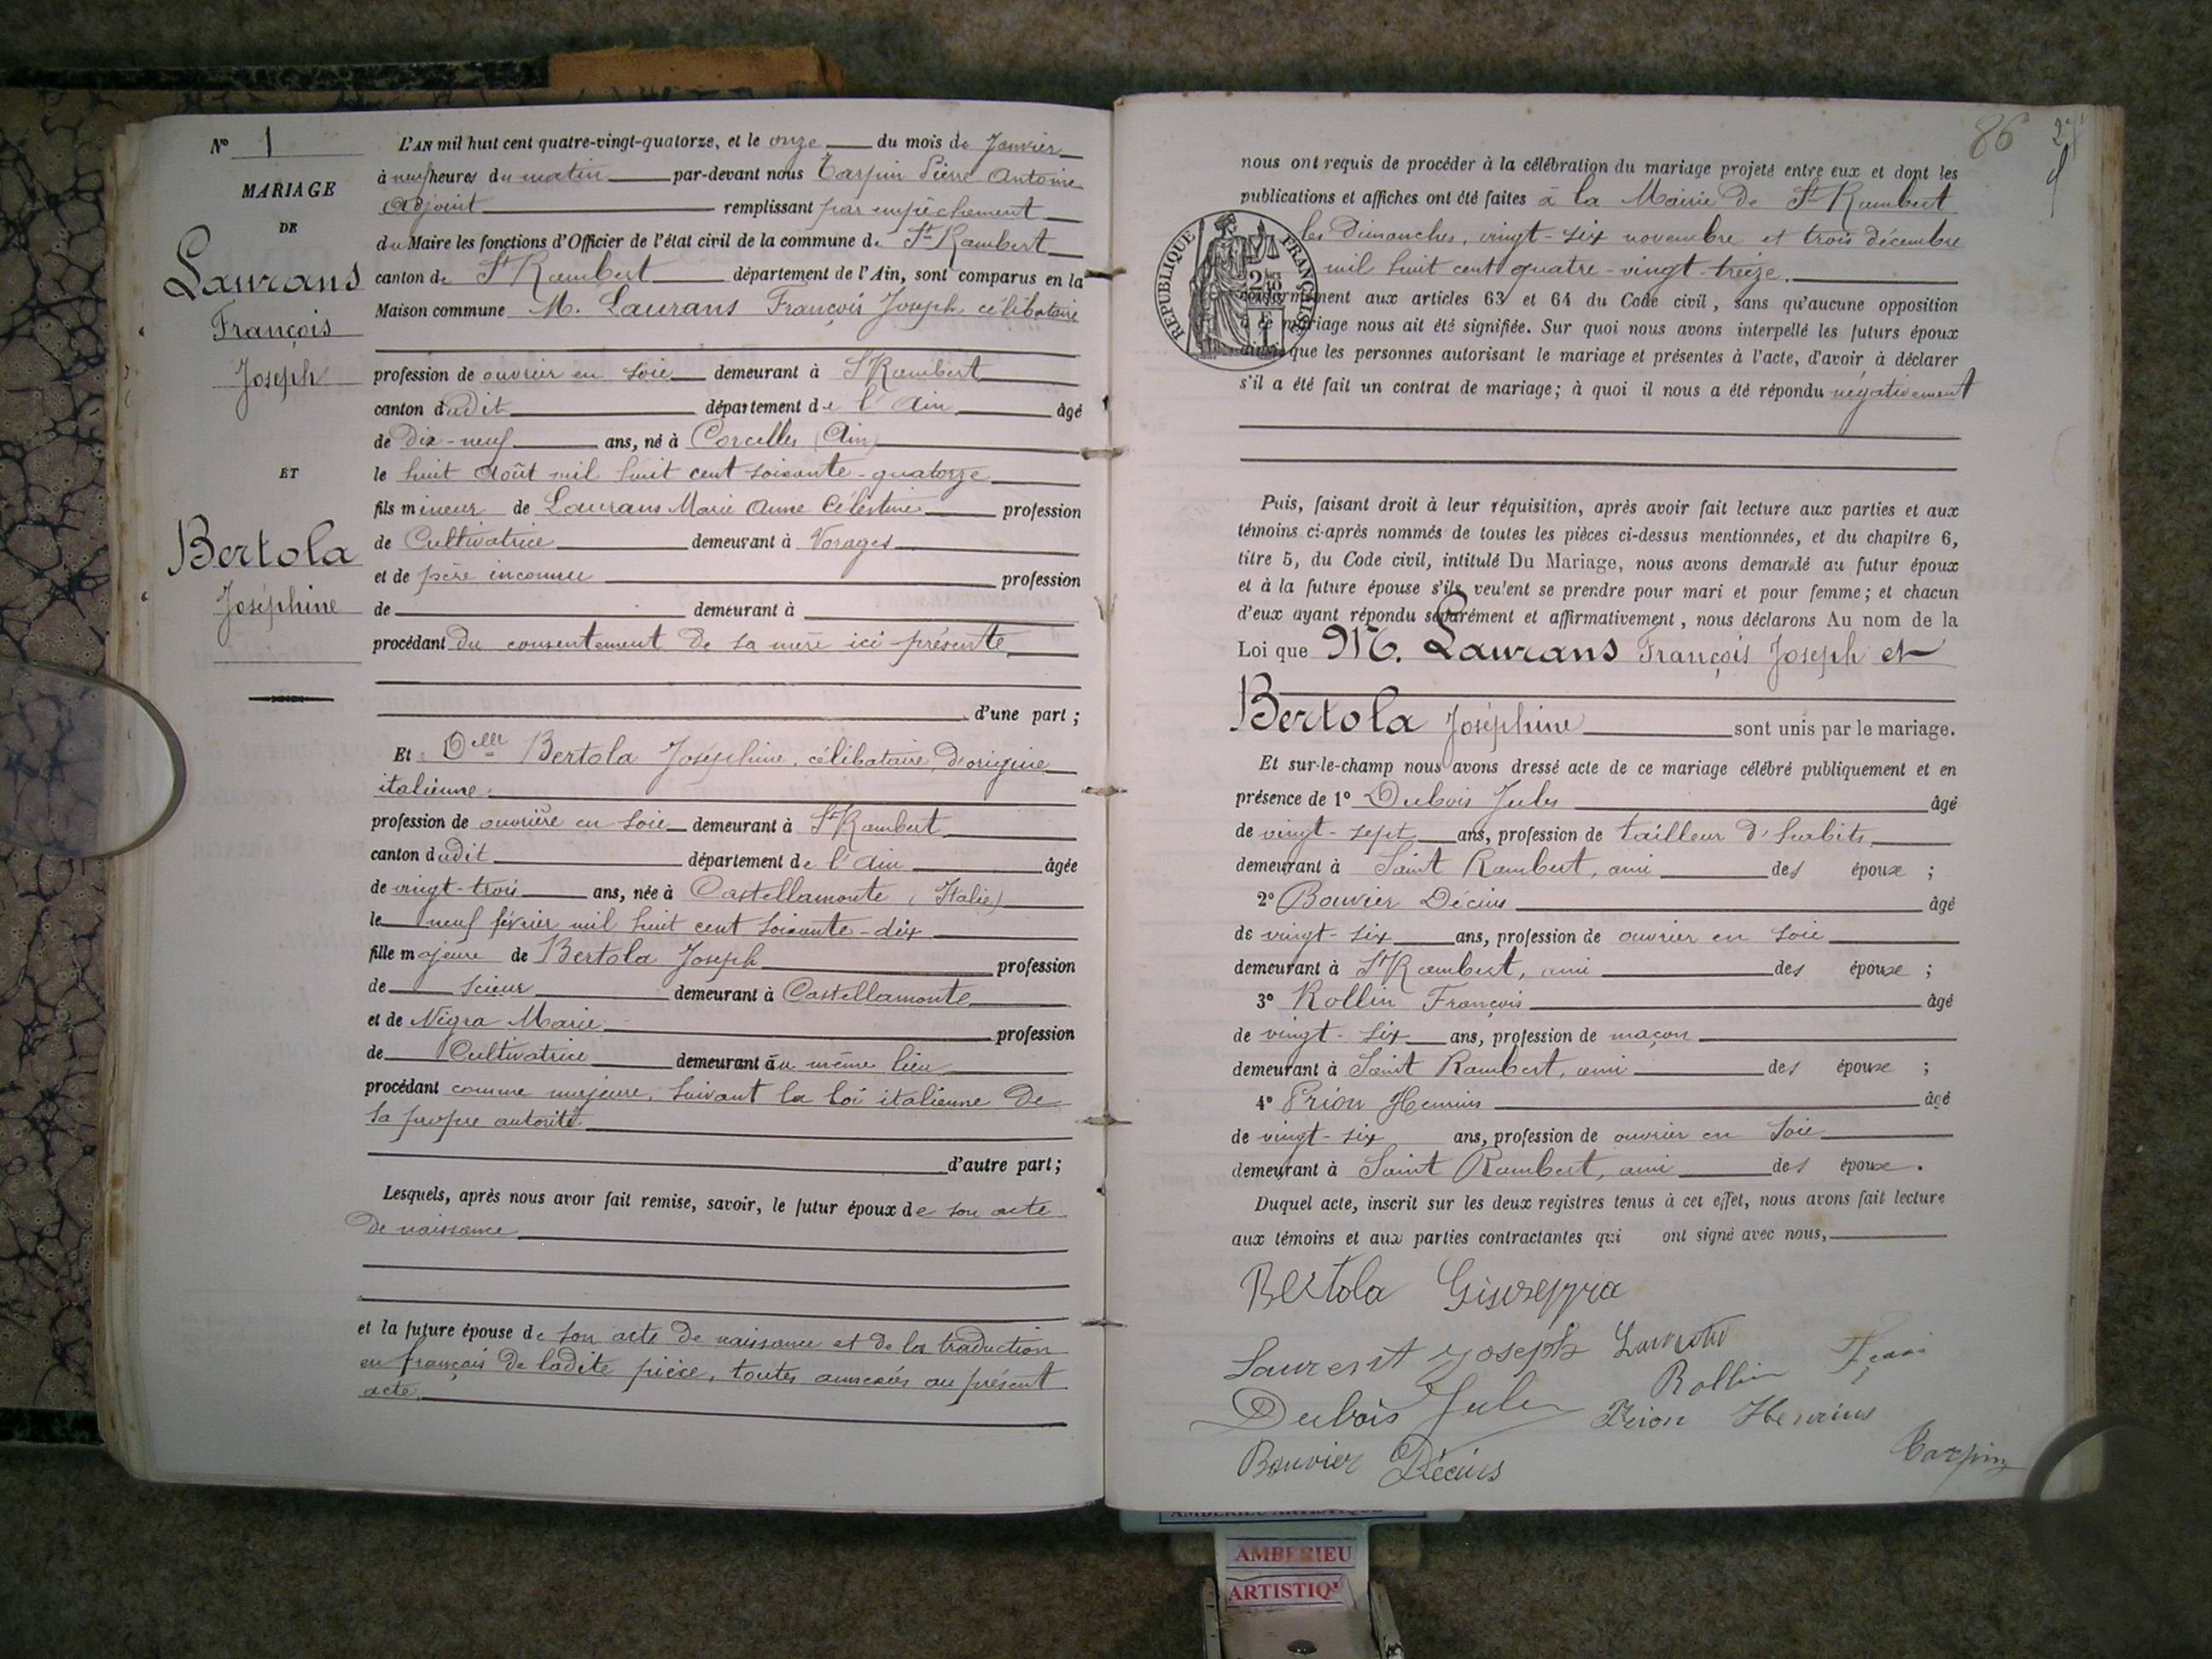 N° 1
MARIAGE
DE
Laurans
François
Joseph
ET
Bertola
Joséphine
L'AN mil huit cent quatre-vingt-quatorze, et le onze du mois de Janvier
à neuf heures du matin par-devant nous Tarpin Pierre Antoine
adjoint remplissant par empêchement
du Maire les fonctions d'Officier de l'état civil de la commune de St Rambert
canton de St Rambert département de l'Ain, sont comparus en la
Maison commune M. Laurans François Joseph célibataire
profession de ouvrier en soie demeurant à St Rambert
canton dudit département de l'Ain âgé
de dix-neuf ans, né à Corcelles (Ain)
le huit août mil huit cent soixante-quatorze
fils mineur de Laurans Marie Anne Célestine profession
de Cultivatrice demeurant à Vorages
et de père inconnu profession
de demeurant à
procédant du consentement de sa mère ici présente
d'une part ;
Et Delle Bertola Joséphine, célibataire, d'origine
italienne
profession de ouvrière en soie demeurant à St Rambert
canton dudit département de l'Ain âgée
de vingt-trois ans, née à Castellamonte (Italie)
le neuf février mil huit cent soixante-dix
fille majeure de Bertola Joseph profession
de scieur demeurant à Castellamonte
et de Nigra Marie profession
de Cultivatrice demeurant au même lieu
procédant comme majeure, suivant la loi italienne de
sa propre autorité
d'autre part ;
Lesquels, après nous avoir fait remise, savoir, le futur époux de son acte
de naissance
et la future épouse de son acte de naissance et de la traduction
en français de ladite pièce, toutes annexées au présent
acte.
86
nous ont requis de procéder à la célébration du mariage projeté entre eux et dont les
publications et affiches ont été faites à la Mairie de St Rambert
les Dimanches, vingt-six novembre et trois décembre
mil huit cent quatre-vingt-treize.
RÉPUBLIQUE FRANÇAISE
conformément aux articles 63 et 64 du Code civil, sans qu'aucune opposition
à ce mariage nous ait été signifiée. Sur quoi nous avons interpellé les futurs époux
ainsi que les personnes autorisant le mariage et présentes à l'acte, d'avoir à déclarer
s'il a été fait un contrat de mariage ; à quoi il nous a été répondu négativement
Puis, faisant droit à leur réquisition, après avoir fait lecture aux parties et aux
témoins ci-après nommés de toutes les pièces ci-dessus mentionnées, et du chapitre 6,
titre 5, du Code civil, intitulé Du Mariage, nous avons demandé au futur époux
et à la future épouse s'ils veulent se prendre pour mari et pour femme ; et chacun
d'eux ayant répondu séparément et affirmativement, nous déclarons Au nom de la
Loi que M. Laurans François Joseph et
Bertola Joséphine sont unis par le mariage.
Et sur-le-champ nous avons dressé acte de ce mariage célébré publiquement et en
présence de 1° Dubois Jules âgé
de vingt-sept ans, profession de tailleur d'habits
demeurant à Saint Rambert, ami des époux ;
2° Bouvier Décius âgé
de vingt-six ans, profession de ouvrier en soie
demeurant à St Rambert, ami des époux ;
3° Rollin François âgé
de vingt-six ans, profession de maçon
demeurant à Saint Rambert, ami des époux ;
4° Prion Henrius âgé
de vingt-six ans, profession de ouvrier en soie
demeurant à Saint Rambert, ami des époux .
Duquel acte, inscrit sur les deux registres tenus à cet effet, nous avons fait lecture
aux témoins et aux parties contractantes qui ont signé avec nous,
Bertola Giuseppia
Laurent Joseph
Rollin
Dubois Jules Prion Henrius
Bouvier Décius
Tarpin
AMBERIEU ARTISTIQUE
AMBERIEU
ARTISTIQ'